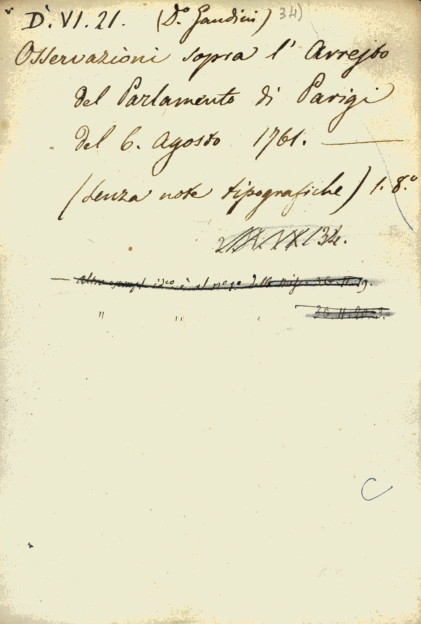 D. VI. 21. (D.º Gandini) 34)
Osservazioni sopra l' Arresto
del Parlamento di Parigi
del 6. Agosto 1761. —
(senza note tipografiche) 1. 8.º
34.
" " "
C